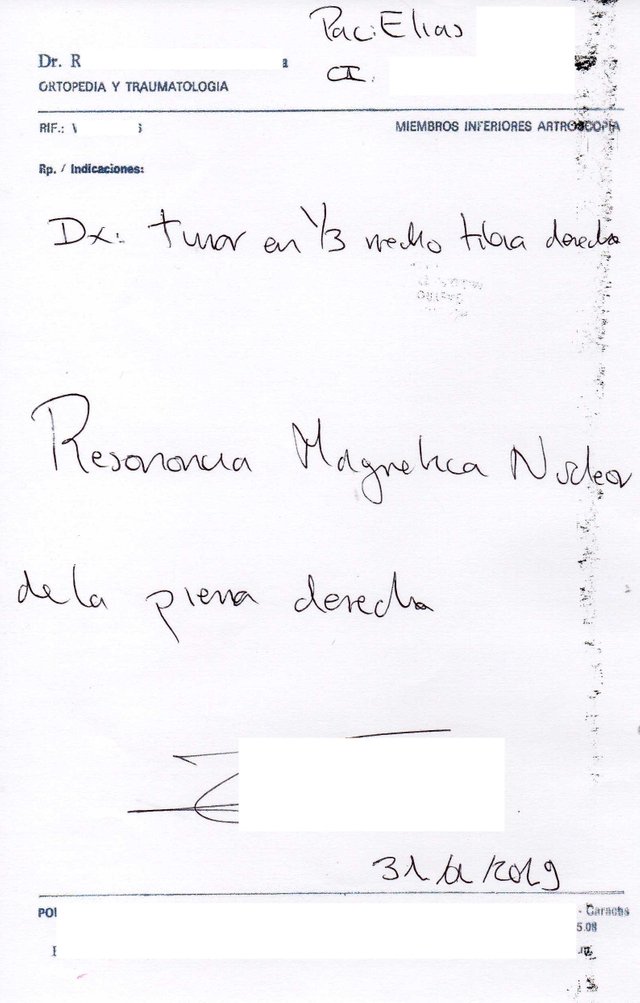 Pac: Elias
Dr. R
CI.
ORTOPEDIA Y TRAUMATOLOGIA
RIF.: V
MIEMBROS INFERIORES ARTROSCOPIA
Rp. / Indicaciones:
Dx: tumor en 1/3 medio tibia derecha
Resonancia Magnetica Nuclear
de la pierna derecha
2019
POI
- Caracas
5.08